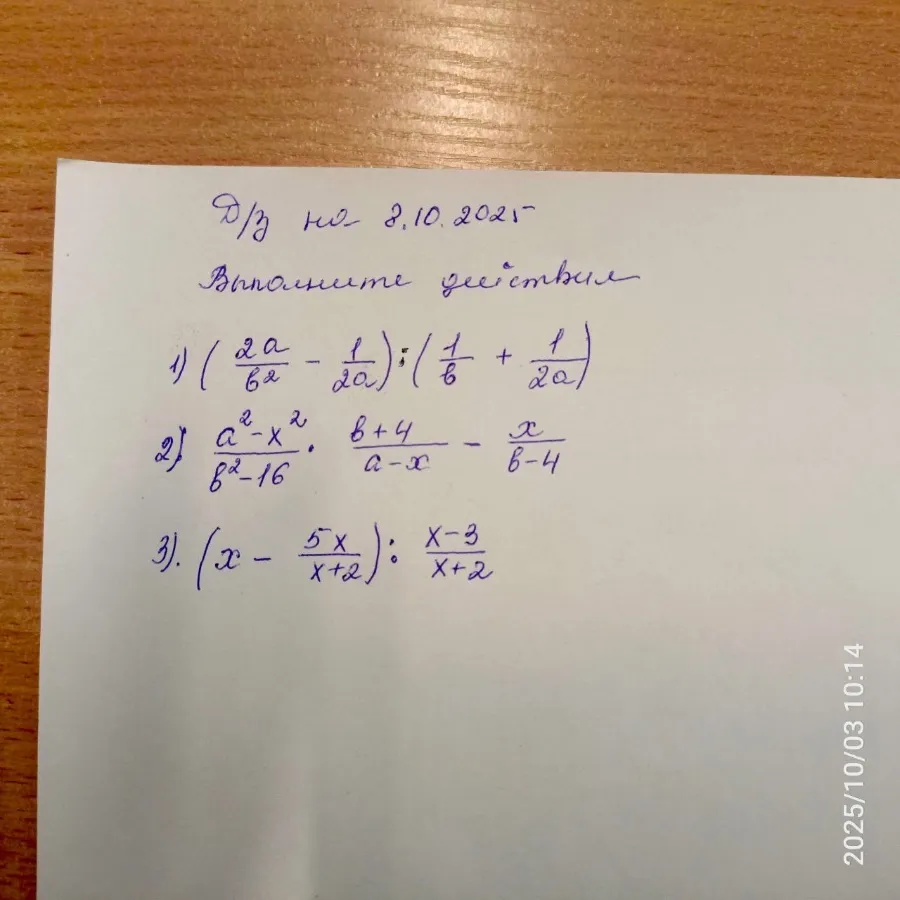 Д/з на 8.10.2025
Выполните действия
1) (2a/b² - 1/2a) : (1/b + 1/2a)
2). a²-x²/b²-16 · b+4/a-x - x/b-4
3). (x - 5x/x+2) : x-3/x+2
2025/10/03 10:14